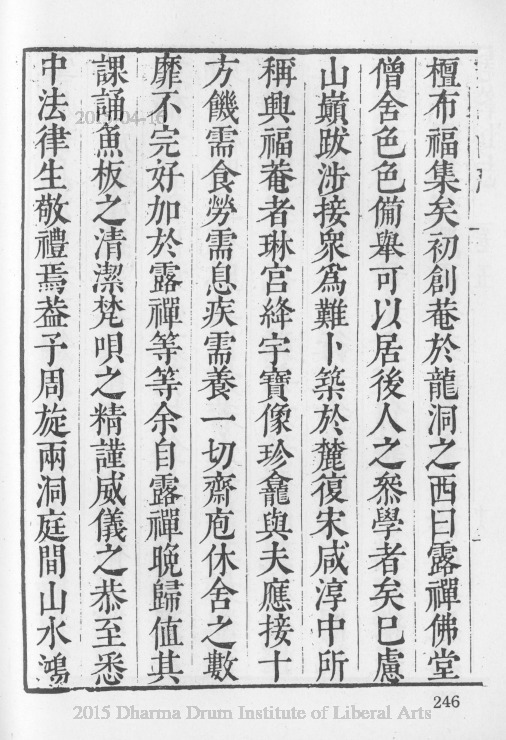 檀布福集矣初創菴於龍洞之西曰露禪佛堂
僧舍色色備舉可以居後人之叅學者矣已慮
山巔跋涉接衆爲難卜築於麓復宋咸淳中所
稱興福菴者琳宮絳宇寶像珍龕與夫應接十
方饑需食勞需息疾需養一切齋庖休舍之數
靡不完好加於露禪等等余自露禪晚歸值其
課誦魚板之清潔梵唄之精謹威儀之恭至悉
中法律生敬禮焉葢子周旋兩洞庭間山水鴻
246
2015-04-16
2015 Dharma Drum Institute of Liberal Arts